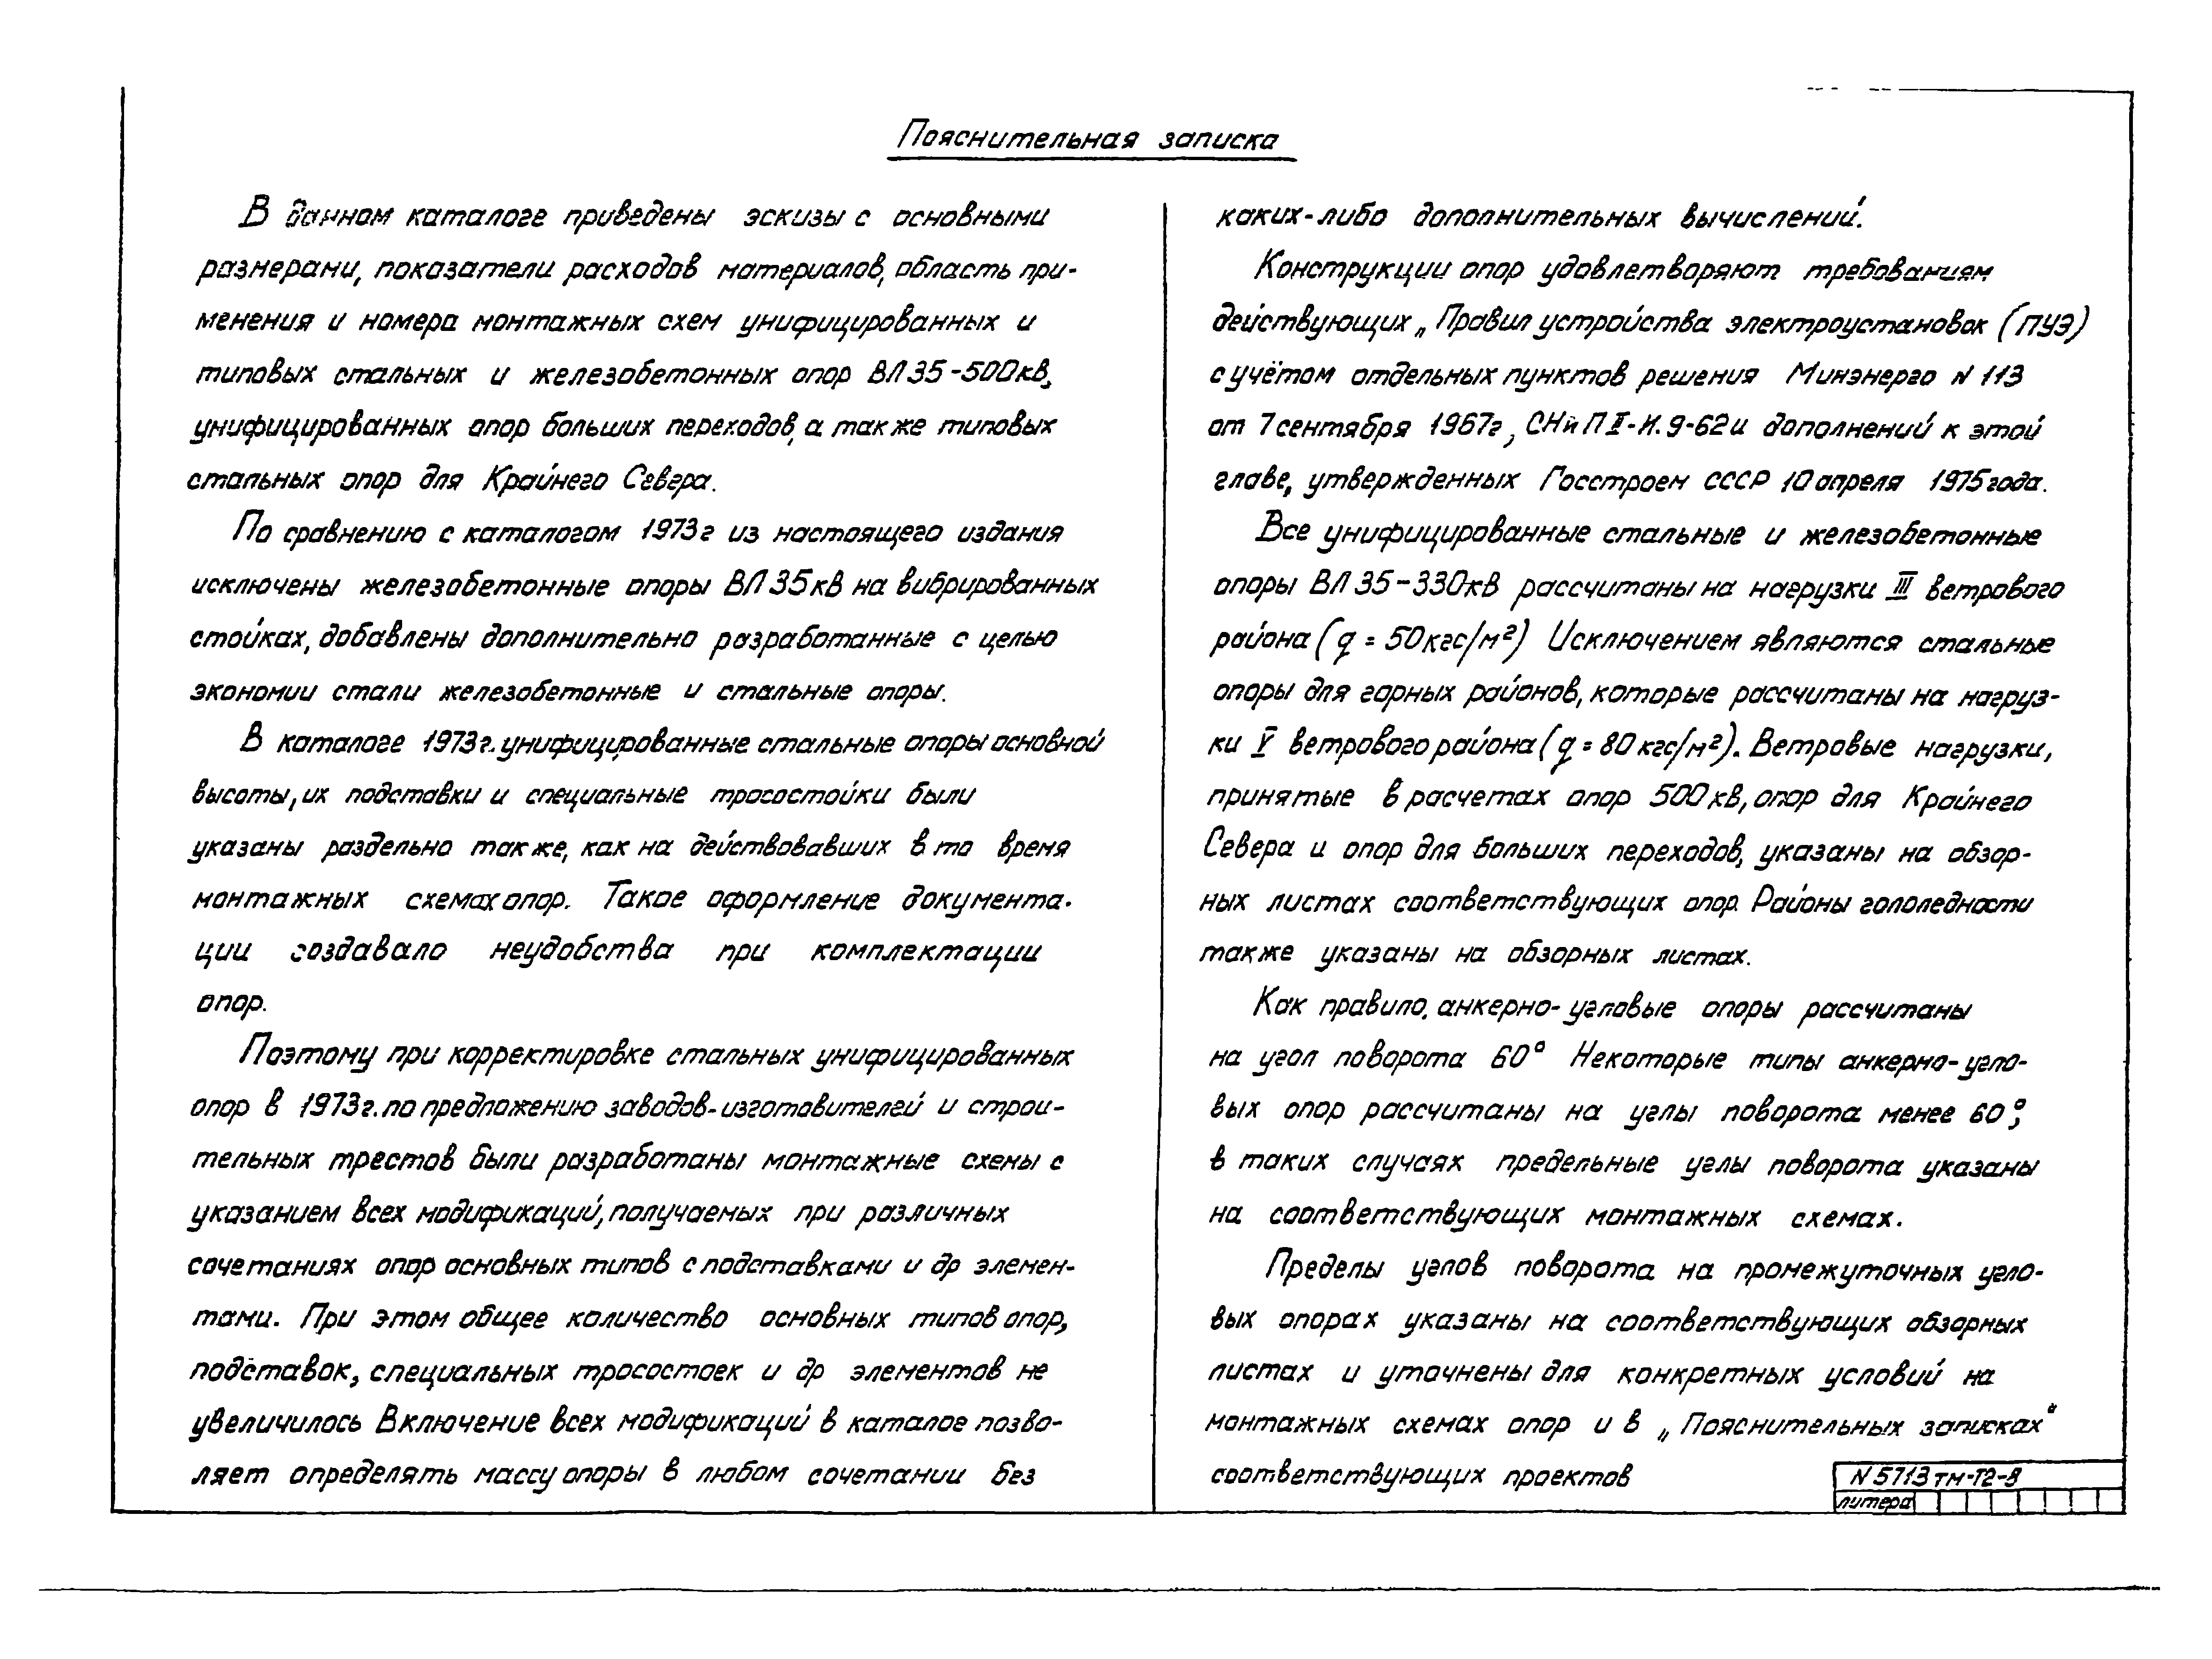 Пояснительная записка
В данном каталоге приведены эскизы с основными
размерами, показатели расходов материалов, область при-
менения и номера монтажных схем унифицированных и
типовых стальных и железобетонных опор ВЛ 35-500кв,
унифицированных опор больших переходов, а также типовых
стальных опор для Крайнего Севера.
По сравнению с каталогом 1973г из настоящего издания
исключены железобетонные опоры ВЛ 35кВ на вибрированных
стойках, добавлены дополнительно разработанные с целью
экономии стали железобетонные и стальные опоры.
В каталоге 1973г. унифицированные стальные опоры основной
высоты, их подставки и специальные тросостойки были
указаны раздельно также, как на действовавших в то время
монтажных схемах опор. Такое оформление документа-
ции создавало неудобства при комплектации
опор.
Поэтому при корректировке стальных унифицированных
опор в 1973г. по предложению заводов-изготовителей и строи-
тельных трестов были разработаны монтажные схемы с
указанием всех модификаций, получаемых при различных
сочетаниях опор основных типов с подставками и др элемен-
тами. При этом общее количество основных типов опор,
подставок, специальных тросостоек и др элементов не
увеличилось Включение всех модификаций в каталог позво-
ляет определять массу опоры в любом сочетании без
каких-либо дополнительных вычислений.
Конструкции опор удовлетворяют требованиям
действующих „Правил устройства электроустановок (ПУЭ)
с учётом отдельных пунктов решения Минэнерго N 113
от 7 сентября 1967г, СНиП II-И.9-62 и дополнений к этой
главе, утвержденных Госстроем СССР 10 апреля 1975 года.
Все унифицированные стальные и железобетонные
опоры ВЛ 35-330кВ рассчитаны на нагрузки III ветрового
района (q = 50 кгс/м²) Исключением являются стальные
опоры для горных районов, которые рассчитаны на нагруз-
ки V ветрового района (q = 80 кгс/м²). Ветровые нагрузки,
принятые в расчетах опор 500 кв, опор для Крайнего
Севера и опор для больших переходов, указаны на обзор-
ных листах соответствующих опор. Районы гололедности
также указаны на обзорных листах.
Как правило, анкерно-угловые опоры рассчитаны
на угол поворота 60° Некоторые типы анкерно-угло-
вых опор рассчитаны на углы поворота менее 60°,
в таких случаях предельные углы поворота указаны
на соответствующих монтажных схемах.
Пределы углов поворота на промежуточных угло-
вых опорах указаны на соответствующих обзорных
листах и уточнены для конкретных условий на
монтажных схемах опор и в „Пояснительных записках"
соответствующих проектов
N 5713тм-Т2-8
литера